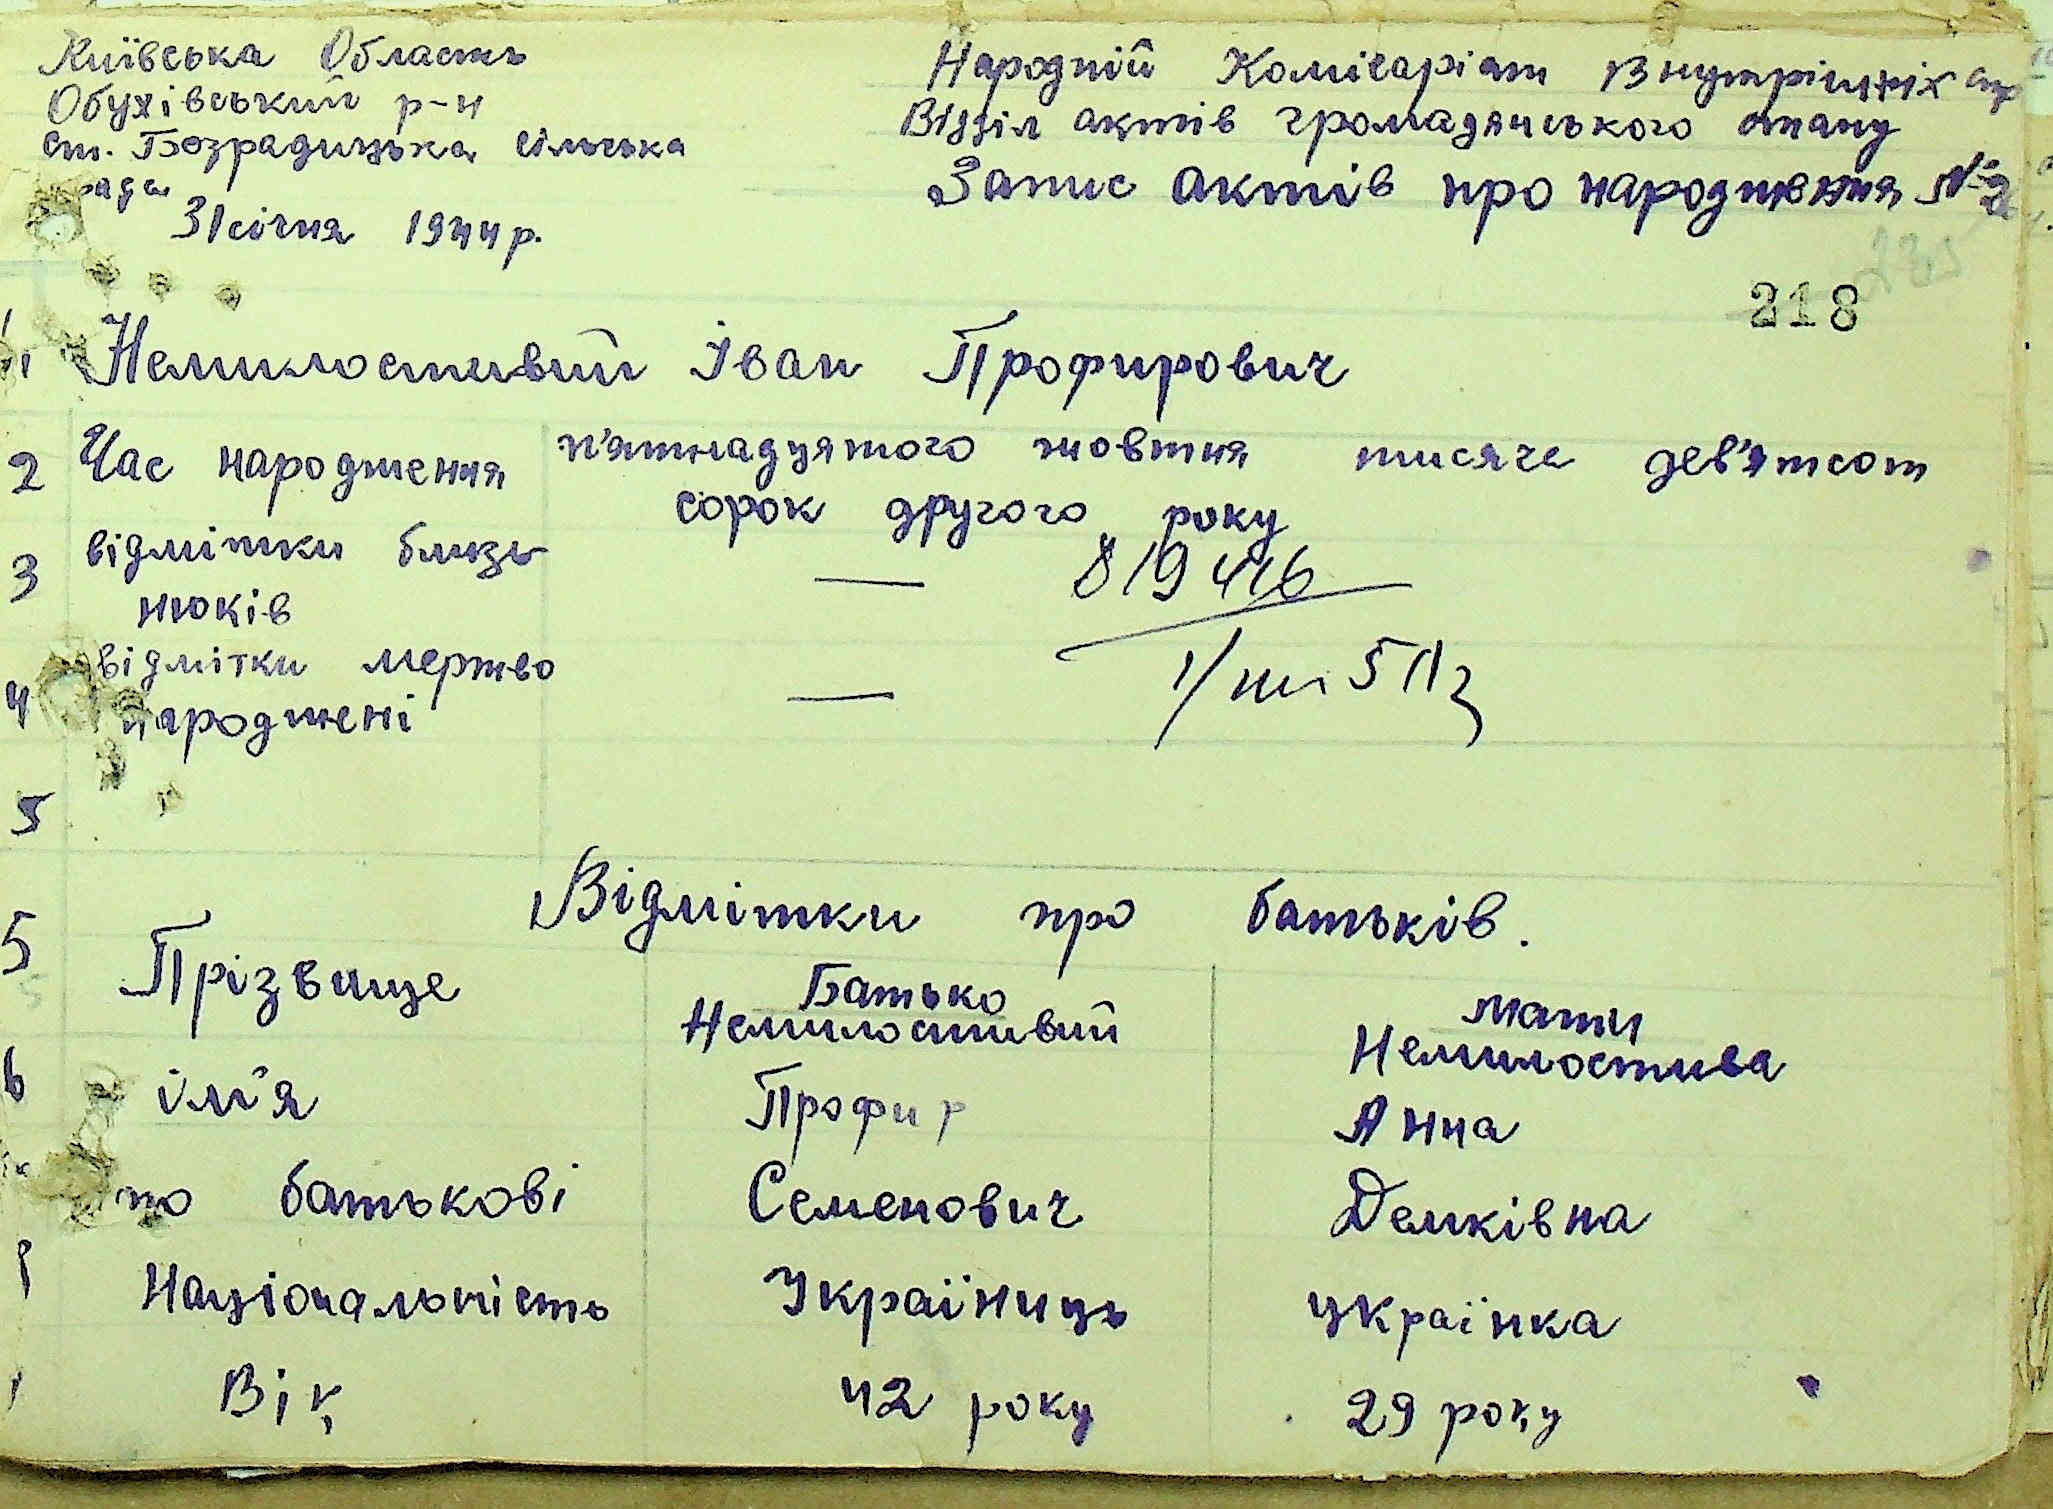 Київська Область
Обухівський р-н
ст. Безрадицька сільська
рада
31 січня 1944 р.
Народній Комісаріат Внутрішніх спр
Відділ актів громадянського стану
Запис актів про народження № 2
218
1 Немилостивий Іван Профирович
2 Час народження п'ятнадцятого жовтня тисяча дев'ятсот
сорок другого року
3 відмітки близь — 819446
нюків
4 відмітки мертво —
народжені
5
Відмітки про батьків.
5 Прізвище Батько Мати
Немилостивий Немилостива
6 ім'я Профир Анна
по батькові Семенович Демківна
Національність Україниць українка
Вік 42 року 29 року